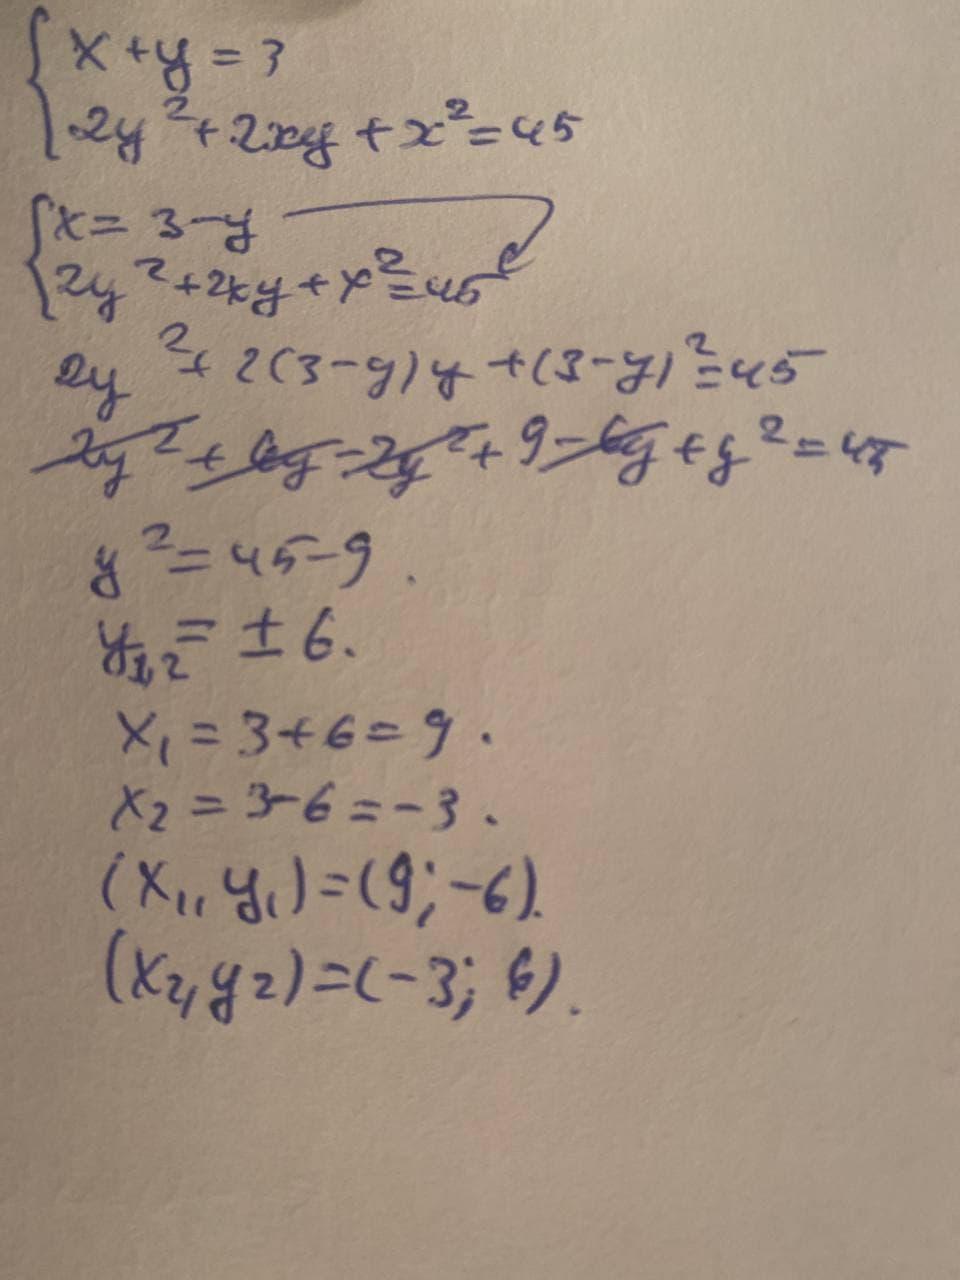 x + y = 3
2y² + 2xy + x² = 45
x = 3 - y
2y² + 2xy + x² = 45
2y² + 2(3-y)y + (3-y)² = 45
2y² + 6y - 2y² + 9 - 6y + y² = 45
y² = 45 - 9.
y₁,₂ = ± 6.
x₁ = 3 + 6 = 9.
x₂ = 3 - 6 = -3.
(x₁, y₁) = (9; -6).
(x₂, y₂) = (-3; 6).